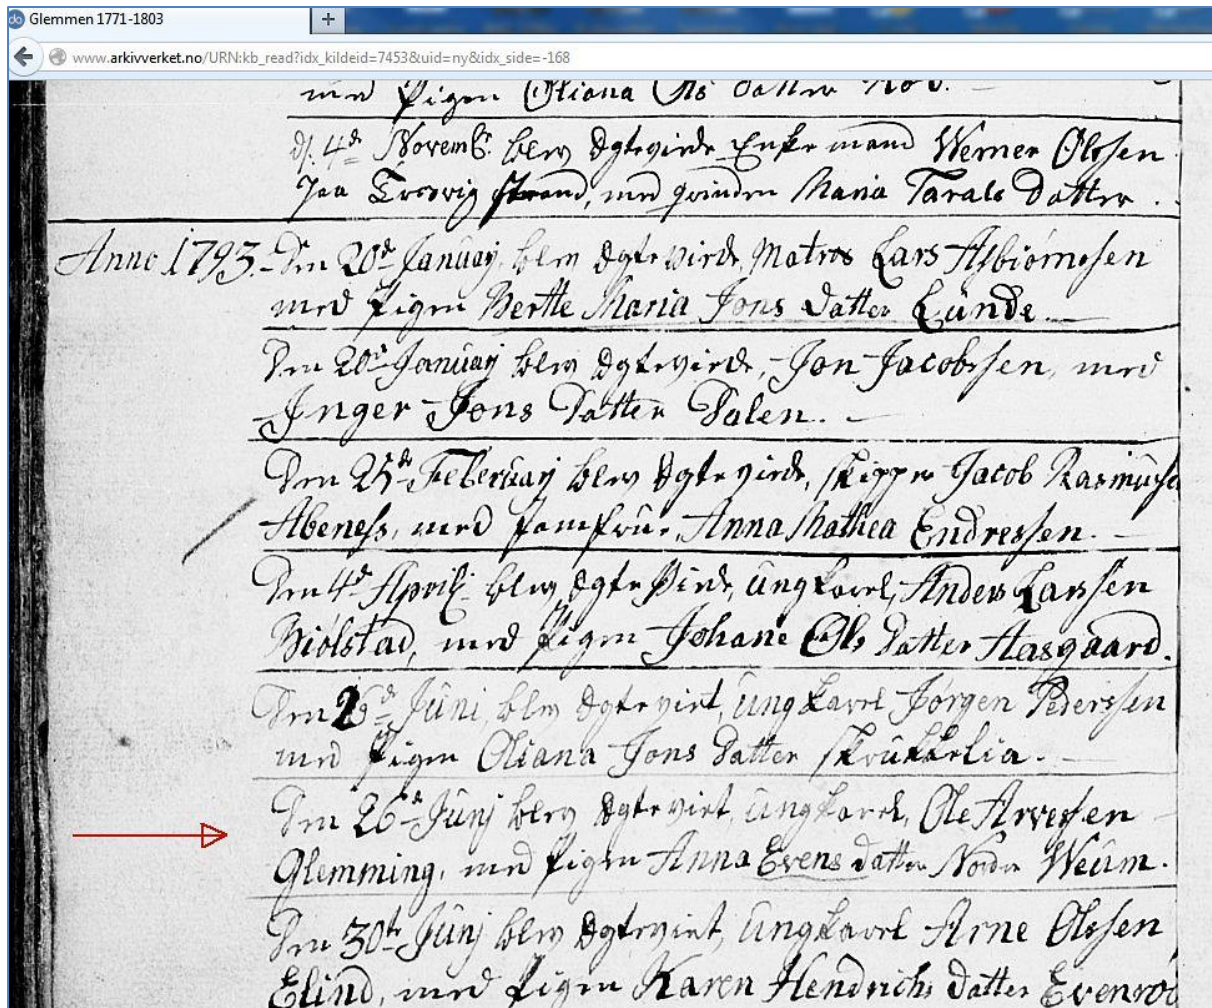 Glemmen 1771-1803
www.arkivverket.no/URN:kb_read?idx_kildeid=7453&uid=ny&idx_side=-168
med Pigen Oliana Ols Datter
d. 4de Novembr blev Ægtevirde Enke mand Werner Olssen
Strand, med qvinden Maria Tarals Datter.
Anno 1793. Den 20de Januarj, blev Ægtevirde, Matros Lars Asbiørnsen
med Pigen Berthe Maria Jons Datter Lunde.
Den 20de Januarj blev Ægtevirde, Jon Jacobssen, med
Inger Jons Datter Dalen.
Den 25de Februarj blev Ægtevirde, skipper Jacob Rasmuss
Abeness, med Jomfrue, Anna Mathea Endressen.
Den 4de April blev Ægtevirde, ungkarl, Anders Larssen
Biølstad, med Pigen Johane Ols Datter Aasgaard.
Den Juni, blev Ægtevirt, ungkarl Jørgen Pederssen
med Pigen Oliana Jons Datter skrukkelia.
Den 26de Junj blev Ægtevirt, ungkarl, Ole Arvessen
Glemming, med Pigen Anna Evens datter Norder Weum.
Den 30te Junj blev Ægtevirt, ungkarl Arne Olssen
Elind, med Pigen Karen Hendrichs Datter Evenrød